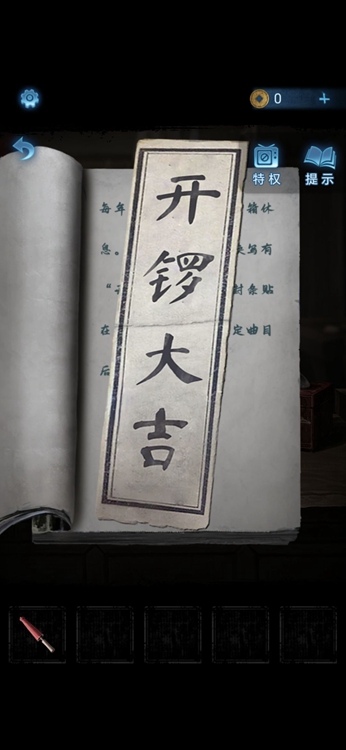 0
特权
提示
开
锣
大
吉
每年
箱休
息。
写有
“
封条贴
在
定曲目
后